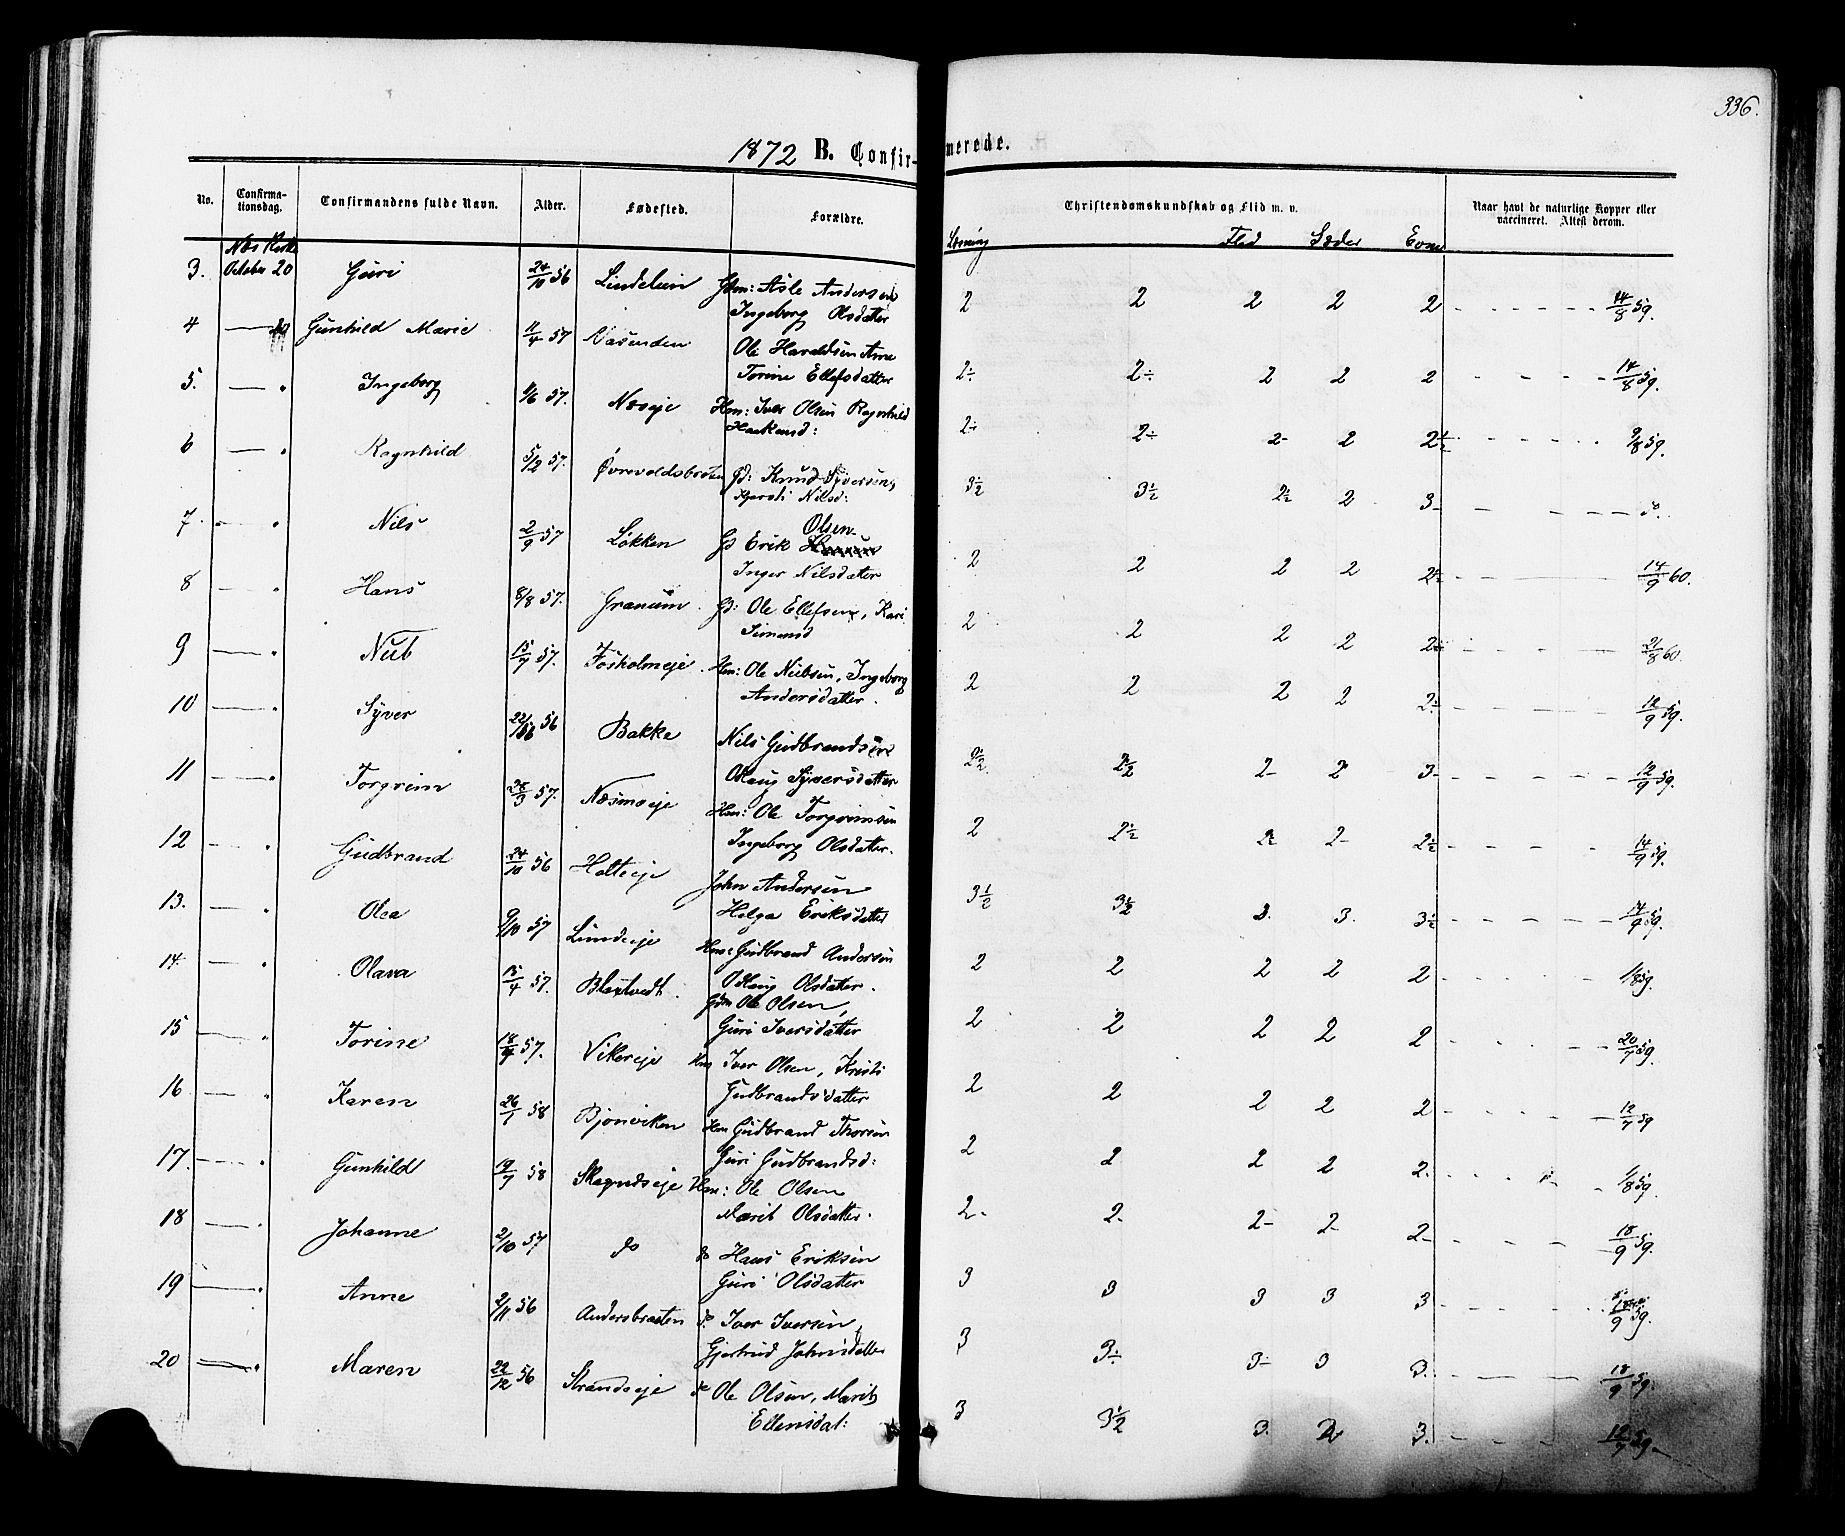 336.
1872 B. Confirmerede.
No. Confirmationsdag. Confirmandens fulde Navn. Alder. Fødested. Forældre. Christendomskundskab og Flid m. v. Naar havt de naturlige Kopper eller vaccineret. Attest derom.
Næs Kirke Læsning Flid Sæder Evner
3. October 20 Guri 24/10 56 Lindelien Gdm: Asle Andersen 2 2 2 2 2 - - - - 14/8 59.
Ingeborg Olsdatter
4 — do Gunhild Marie 11/4 57 Næsenden Ole Haraldsen Anne 2÷ 2÷ 2 2 2 - - - 14/8 59.
Torine Ellefsdatter
5. — " Ingeborg 4/6 57. Næseje Hm: Iver Olsen Ragnhild 2÷ 2÷ 2- 2 2½ - - - 9/8 59.
Haakensd:
6 — " Ragnhild 5/2 57. Øvrevoldsbraten Gd: Knud Syversen, 3½ 3½ 2½ 2 3- - - -
Kjersti Nilsd:
7. - " Nils 2/9 57 Løkken Olsen
Gd Erik 2 2 2 2 2½ - - - 14/9 60.
Inger Nilsdatter
8 — " Hans 8/8 57. Granum Gd: Ole Ellefsen, Kari 2 2 2 2 2 - - - 21/8 60.
Simensd
9 — " Nub 15/7 57. Fosholmeje Hm: Ole Nubsen, Ingeborg 2 2 2 2 2÷ - - - 12/9 59.
Andersdatter.
10 — " Syver 22/ 56 Bakke Nils Gudbrandsen 2½. 2½ 2- 2 3- - - - 12/9 59.
Oslaug Syversdatter
11 — " Torgrim 28/3 57. Næsmoeje Hm: Ole Torgrimsen 2 2½ 2½ 2- 2½ - - - 14/9 59.
Ingeborg Olsdatter.
12 - " Gudbrand 24/10 56 Holteeje John Andersen 3½ 3½ 3. 3. 3½ - - - 14/9 59.
Helga Eriksdatter
13. — " Olea 9/10 57 Lundeeje Hm: Gudbrand Andersen 2 2 2 2 2 - - - 1/8 59.
Oslaug Olsdatter.
14. — " Olava 15/4 57. Blextvedt. Gdm Ole Olsen, 2 2 2 2 2 - - - 20/7 59.
Guri Iversdatter
15 — " Torine 18/4 57. Vikereje Hm Iver Olsen, Kristi 2 2 2 2 2 - - - 12/7 59
Gudbrandsdatter
16 — " Karen 26/1 58 Bjonviken Hm Gudbrand Thorsen 2 2 2 2 2. - - - 1/8 59.
Guri Gudbrandsd:
17. — " Gunhild 19/7 58 Skagndseje Hm: Ole Olsen 2- 2- 2- 2- 2- - - - 18/9 59.
Marit Olsdatter.
18 — " Johanne 2/10 57 do do Hans Eriksen 3 3 3 3 3 - - - 18/9 59.
Guri Olsdatter
19 — " Anne 2/11 56 Andersbraaten do. Iver Iversen, 3 3÷ 3- 3 3. - - - 18/9 59.
Gjertrud Johnsdatter
20 — " Maren 22/12 56 Strandeeje do Ole Olsen, Marit 3 3½ 3. 2 3. - - - 12/7 59.
Ellensdat: